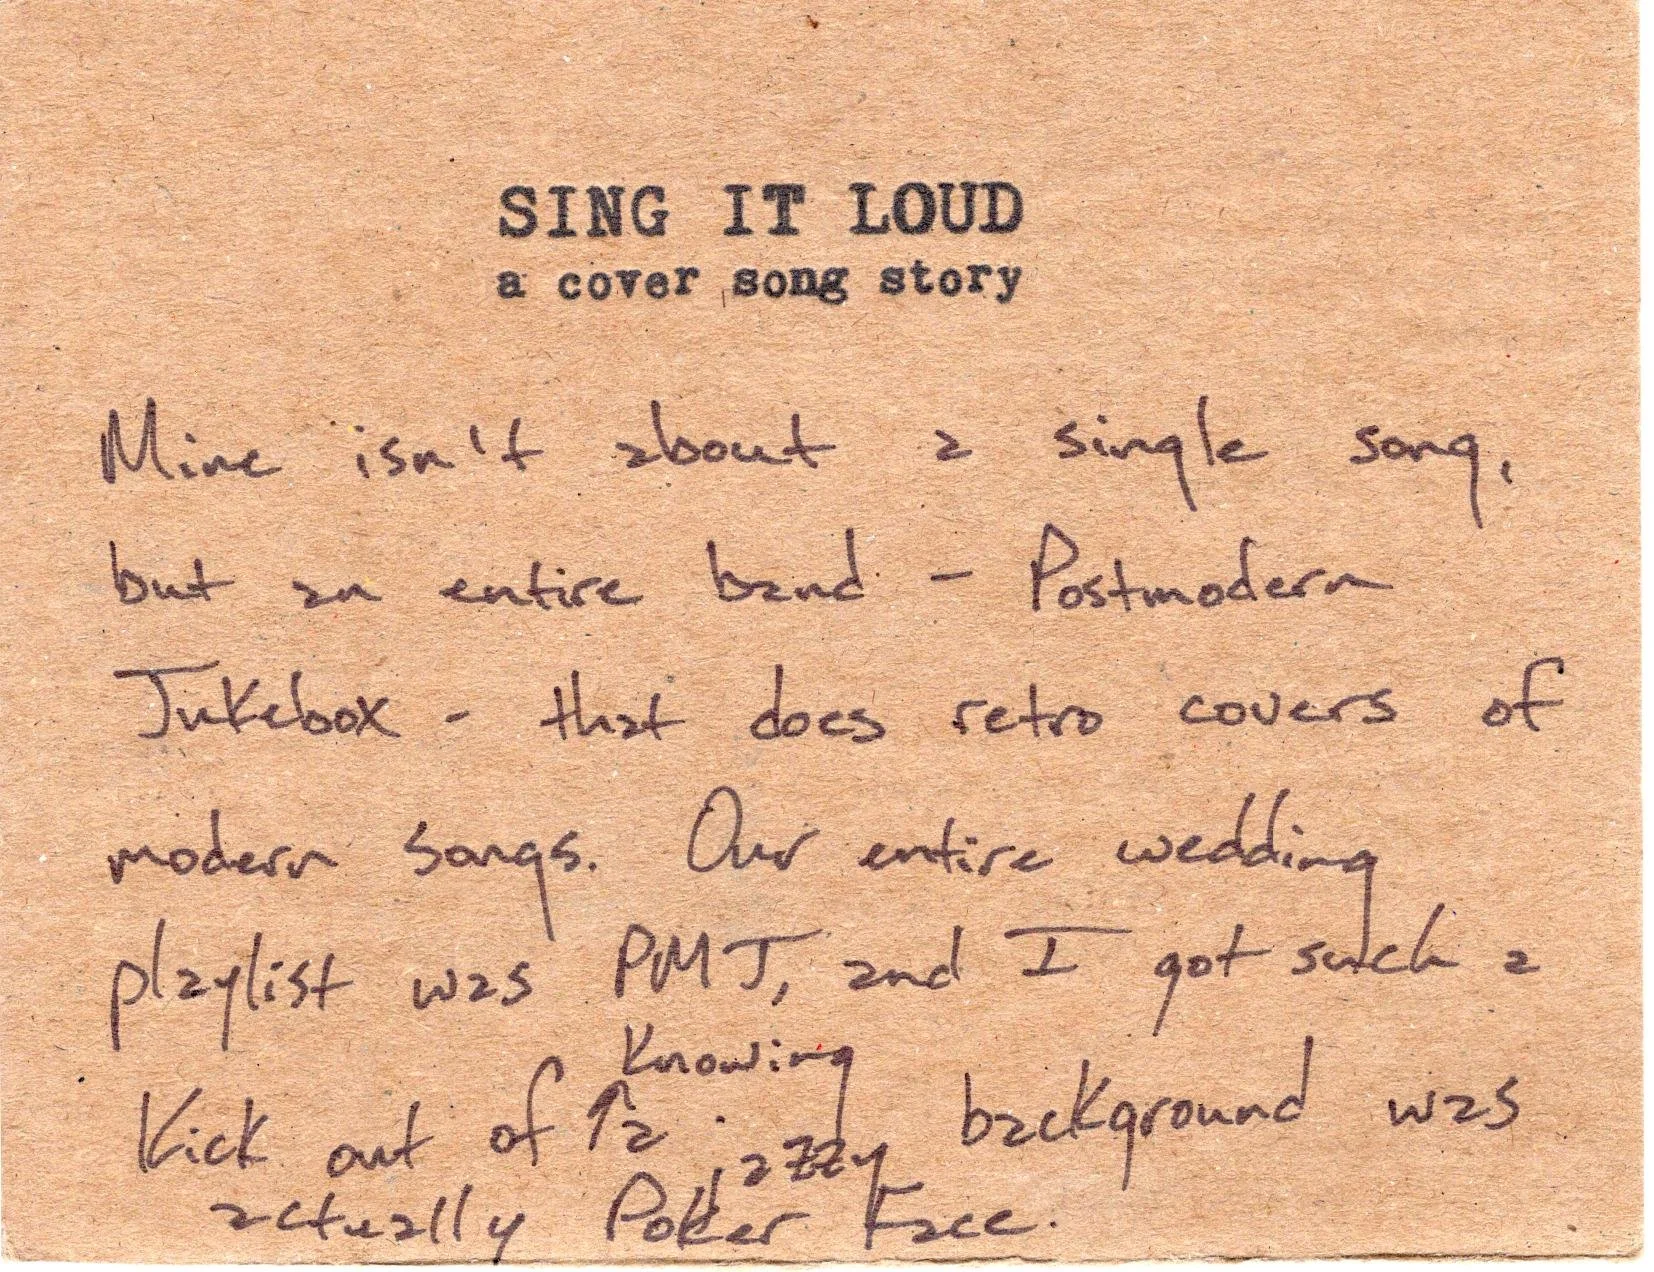 SING IT LOUD
a cover song story
Mine isn't about a single song,
but an entire band - Postmodern
Jukebox - that does retro covers of
modern songs. Our entire wedding
playlist was PMJ, and I got such a
Kick out of ↑knowing a jazzy background was
actually Poker Face.